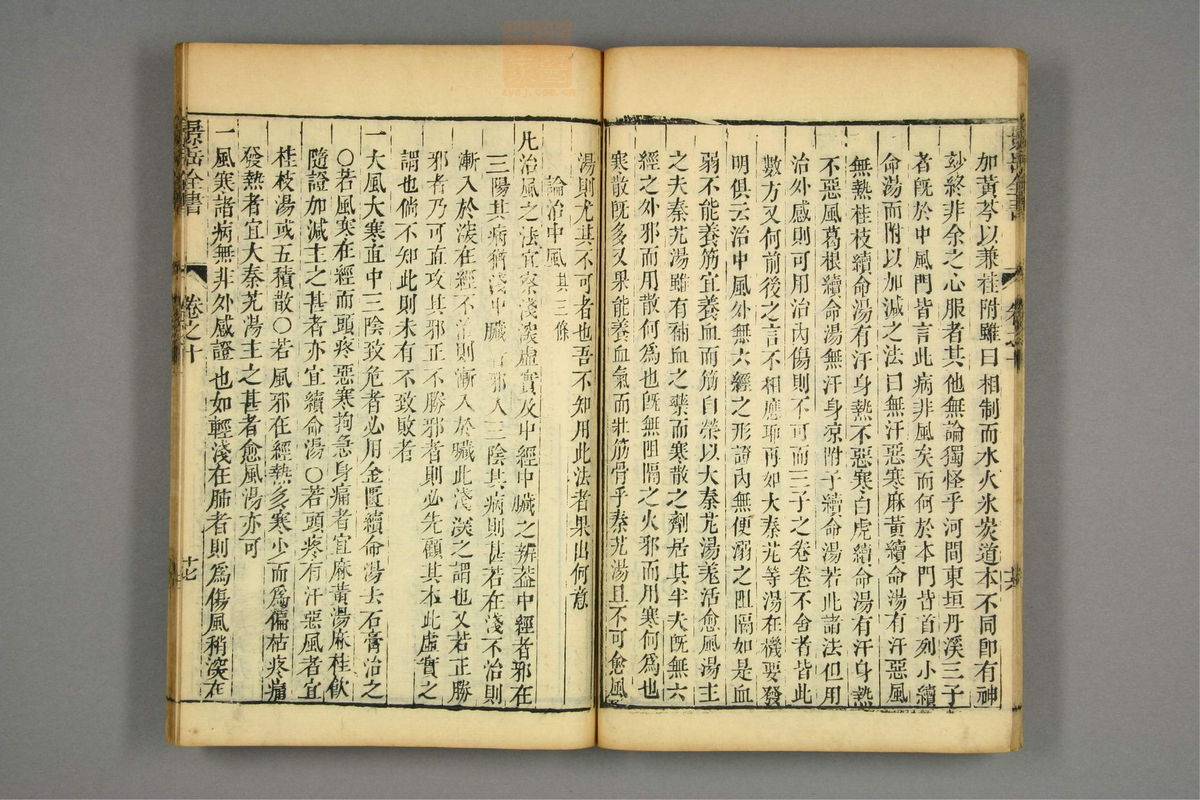 加黃芩以兼桂附雖曰相制而水火氷炭道本不同卽有神
玅終非余之心服者其他無論獨怪乎河間東垣丹溪三子
者旣於中風門皆言此病非風矣而何於本門皆首列小續
命湯而附以加減之法曰無汗惡寒麻黃續命湯有汗惡風
無熱桂枝續命湯有汗身熱不惡寒白虎續命湯有汗身熱
不惡風葛根續命湯無汗身凉附子續命湯若此諸法但用
治外感則可用治內傷則不可而三子之卷卷不舍者皆此
數方又何前後之言不相應耶再如大秦艽等湯在機要發
明俱云治中風外無六經之形證內無便溺之阻隔如是血
弱不能養筋宜養血而筋自榮以大秦艽湯羌活愈風湯主
之夫秦艽湯雖有補血之藥而寒散之劑居其半夫旣無六
經之外邪而用散何爲也旣無阻隔之火邪而用寒何爲也
寒散旣多又果能養血氣而壯筋骨乎秦艽湯且不可愈風
湯則尤其不可者也吾不知用此法者果出何意
論治中風 其三條
凡治風之法宜察淺深虛實及中經中臟之辨葢中經者邪在
三陽其病猶淺中臟者邪入三陰其病則甚若在淺不治則
漸入於深在經不治則漸入於臟此淺深之謂也又若正勝
邪者乃可直攻其邪正不勝邪者則必先顧其本此虛實之
謂也倘不知此則未有不致敗者
一大風大寒直中三陰致危者必用金匱續命湯去石膏治之
○若風寒在經而頭疼惡寒拘急身痛者宜麻黃湯麻桂飮
隨證加減主之甚者亦宜續命湯○若頭疼有汗惡風者宜
桂枝湯或五積散○若風邪在經熱多寒少而爲偏枯疼痛
發熱者宜大秦艽湯主之甚者愈風湯亦可
一風寒諸病無非外感證也如輕淺在肺者則爲傷風稍深在
景岳全書
卷之十
十七